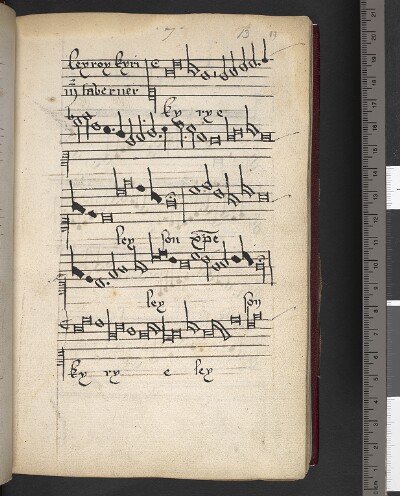 7 13 13
leyroy kyri e
mr taberner
ky rye
ley son xpe
ley son
ky ry e ley